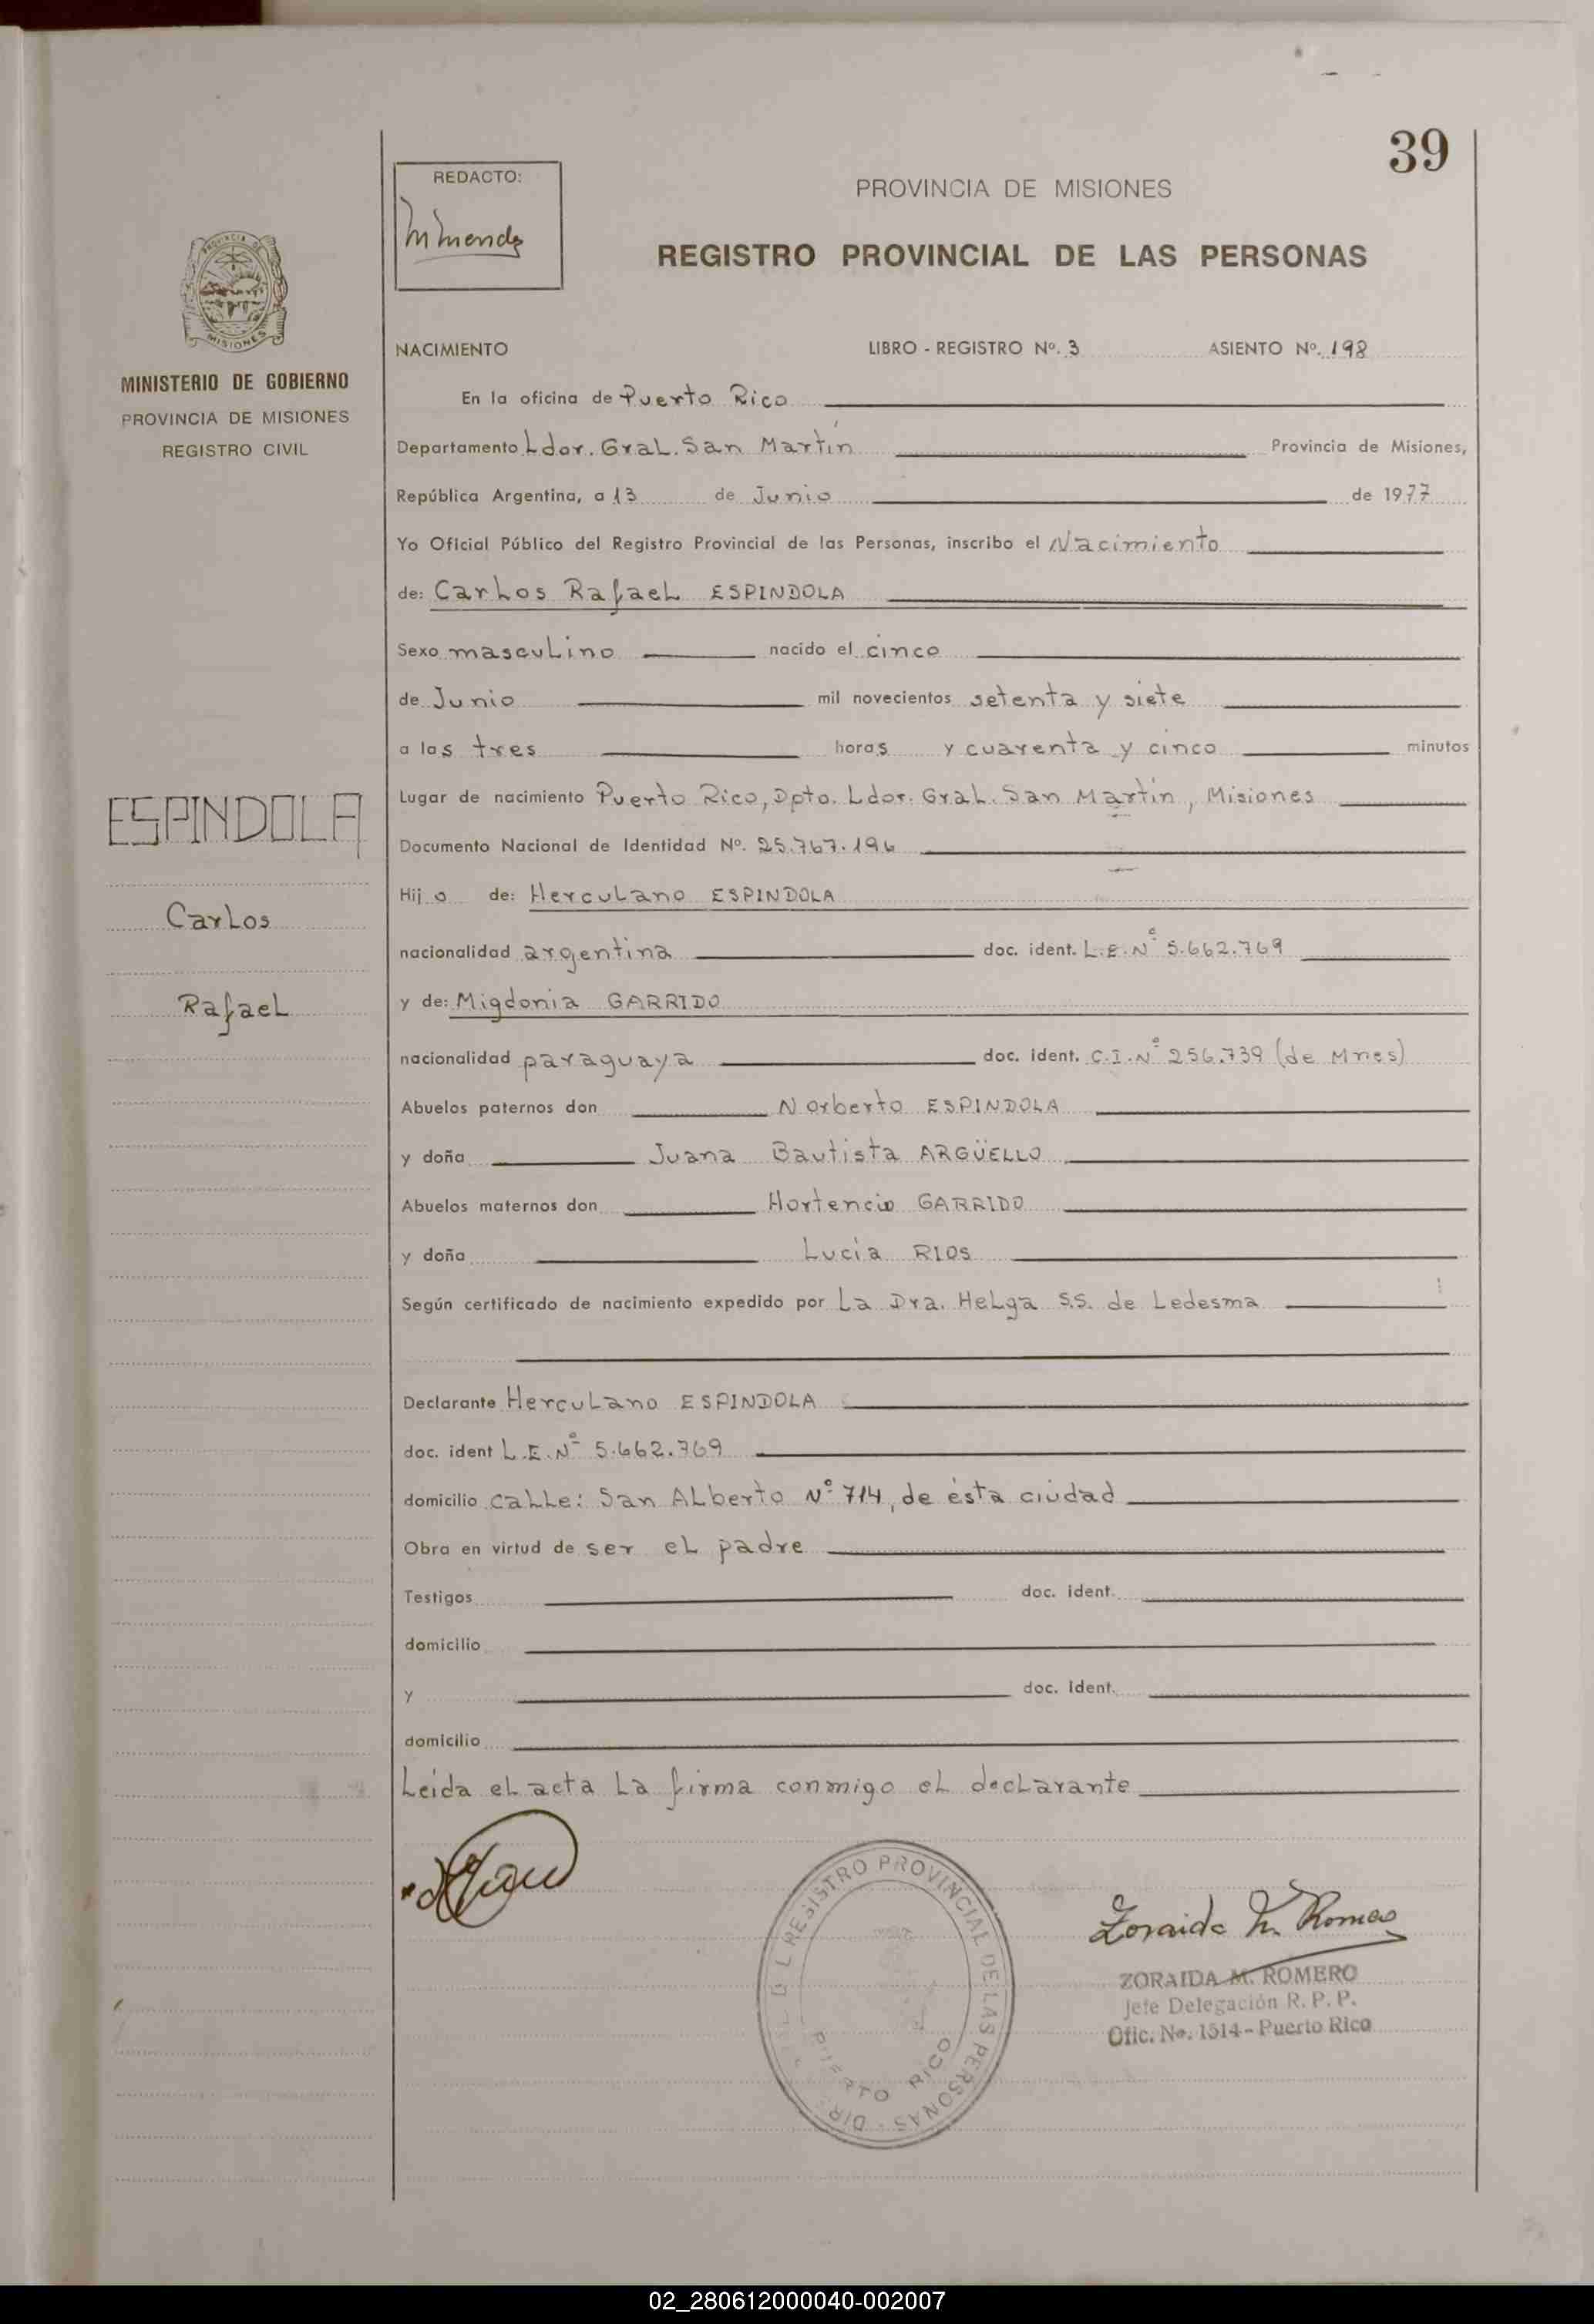 39
REDACTO:
PROVINCIA DE MISIONES
REGISTRO PROVINCIAL DE LAS PERSONAS
PROVINCIA DE
MISIONES
MINISTERIO DE GOBIERNO
PROVINCIA DE MISIONES
REGISTRO CIVIL
NACIMIENTO LIBRO - REGISTRO Nº. 3 ASIENTO Nº. 198
En la oficina de Puerto Rico
Departamento Ldor. Gral. San Martín Provincia de Misiones,
República Argentina, a 13 de Junio de 1977
Yo Oficial Público del Registro Provincial de las Personas, inscribo el Nacimiento
de: Carlos Rafael ESPINDOLA
Sexo masculino nacido el cinco
de Junio mil novecientos setenta y siete
a las tres horas y cuarenta y cinco minutos
Lugar de nacimiento Puerto Rico, Dpto. Ldor. Gral. San Martín, Misiones
Documento Nacional de Identidad Nº. 25.767.196
Hijo de: Herculano ESPINDOLA
nacionalidad argentina doc. ident. L.E. Nº 5.662.769
y de: Migdonia GARRIDO
nacionalidad paraguaya doc. ident. C.I. Nº 256.739 (de Mnes)
Abuelos paternos don Norberto ESPINDOLA
y doña Juana Bautista ARGÜELLO
Abuelos maternos don Hortencio GARRIDO
y doña Lucía RIOS
Según certificado de nacimiento expedido por La Dra. Helga S.S. de Ledesma
Declarante Herculano ESPINDOLA
doc. ident L.E. Nº 5.662.769
domicilio calle: San Alberto Nº 714, de ésta ciudad
Obra en virtud de ser el padre
Testigos doc. ident.
domicilio
y doc. ident.
domicilio
Leída el acta la firma conmigo el declarante
ESPINDOLA
Carlos
Rafael
REGISTRO PROVINCIAL DE LAS PERSONAS - DIR.
PUERTO RICO
Zoraida M. Romero
ZORAIDA M. ROMERO
Jefe Delegación R. P. P.
Ofic. No. 1514 - Puerto Rico
02_280612000040-002007